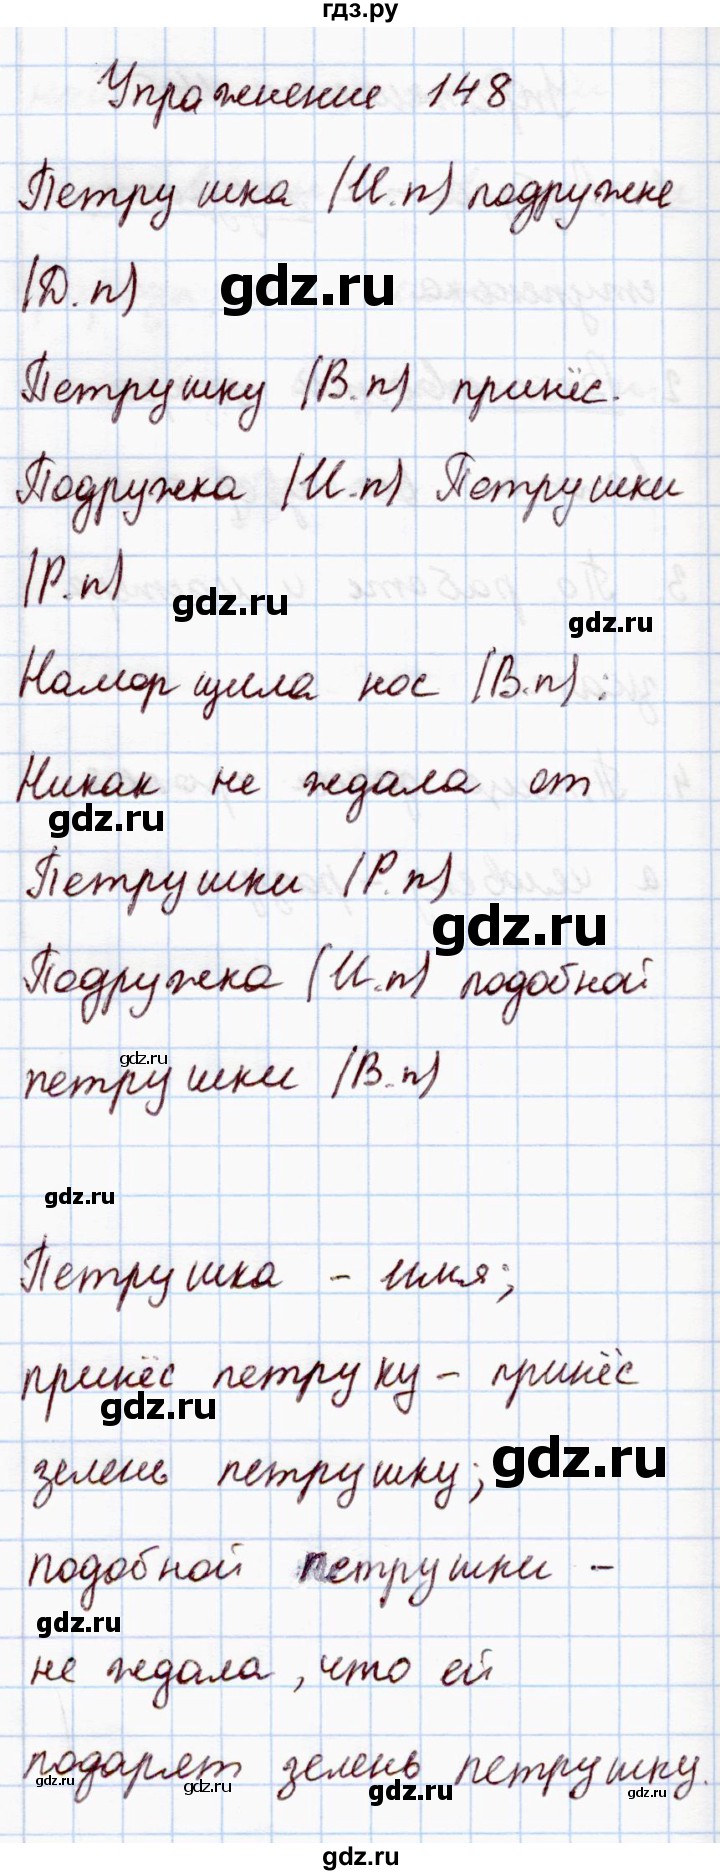 гдз.ру
Упражнение 148
Петрушка (И.п) подружке
(Д.п)
gdz.ru
Петрушку (В.п) принёс.
Подружка (И.п) Петрушки
(Р.п)
gdz.ru
gdz.ru
Наморщила нос (В.п):
Никак не ждала от
gdz.ru
Петрушки (Р.п)
gdz.ru
Подружка (И.п) подобной
gdz.ru
петрушки (В.п)
gdz.ru
Петрушка - имя;
принёс петруку - принёс
gdz.ru
зелень петрушку;
gdz.ru
подобной петрушки -
gdz.ru
не ждала, что ей
подарят зелень петрушку.
gdz.ru
gdz.ru
gdz.ru
gdz.ru
gdz.ru